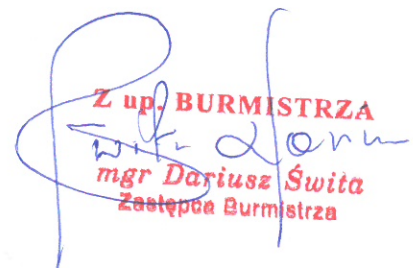 Z up. BURMISTRZA
mgr Dariusz Świta
Zastępca Burmistrza